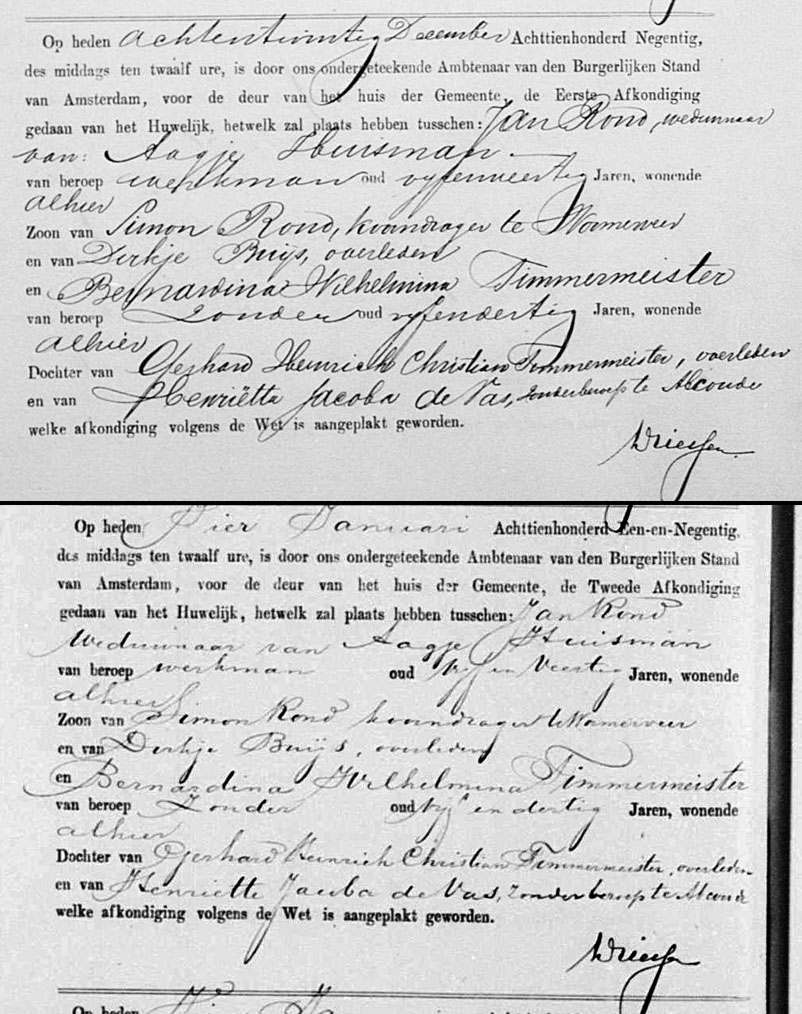 Op heden achtentwintig December Achttienhonderd Negentig,
des middags ten twaalf ure, is door ons ondergeteekende Ambtenaar van den Burgerlijken Stand
van Amsterdam, voor de deur van het huis der Gemeente, de Eerste Afkondiging
gedaan van het Huwelijk, hetwelk zal plaats hebben tusschen: Jan Rond, weduwnaar
van: Aagje Huisman
van beroep werkman oud vijfenveertig Jaren, wonende
alhier
Zoon van Simon Rond, koorndrager te Wormerveer
en van Dirkje Buijs, overleden
en Bernardina Wilhelmina Timmermeister
van beroep zonder oud vijfendertig Jaren, wonende
alhier
Dochter van Gerhard Heinrich Christian Timmermeister, overleden
en van Henriëtta Jacoba de Vas, zonder beroep te Abcoude
welke afkondiging volgens de Wet is aangeplakt geworden.
Op heden Vier Januari Achttienhonderd Een-en-Negentig,
des middags ten twaalf ure, is door ons ondergeteekende Ambtenaar van den Burgerlijken Stand
van Amsterdam, voor de deur van het huis der Gemeente, de Tweede Afkondiging
gedaan van het Huwelijk, hetwelk zal plaats hebben tusschen: Jan Rond
Weduwnaar van Aagje Huisman
van beroep werkman oud Vijf en Veertig Jaren, wonende
alhier
Zoon van Simon Rond koorndrager te Wormerveer
en van Dirkje Buijs, overleden
en Bernardina Wilhelmina Timmermeister
van beroep Zonder oud Vijf en dertig Jaren, wonende
alhier
Dochter van Gerhard Heinrich Christian Timmermeister, overleden
en van Henriette Jacoba de Vas, zonder beroep te Abcoude
welke afkondiging volgens de Wet is aangeplakt geworden.
Op heden